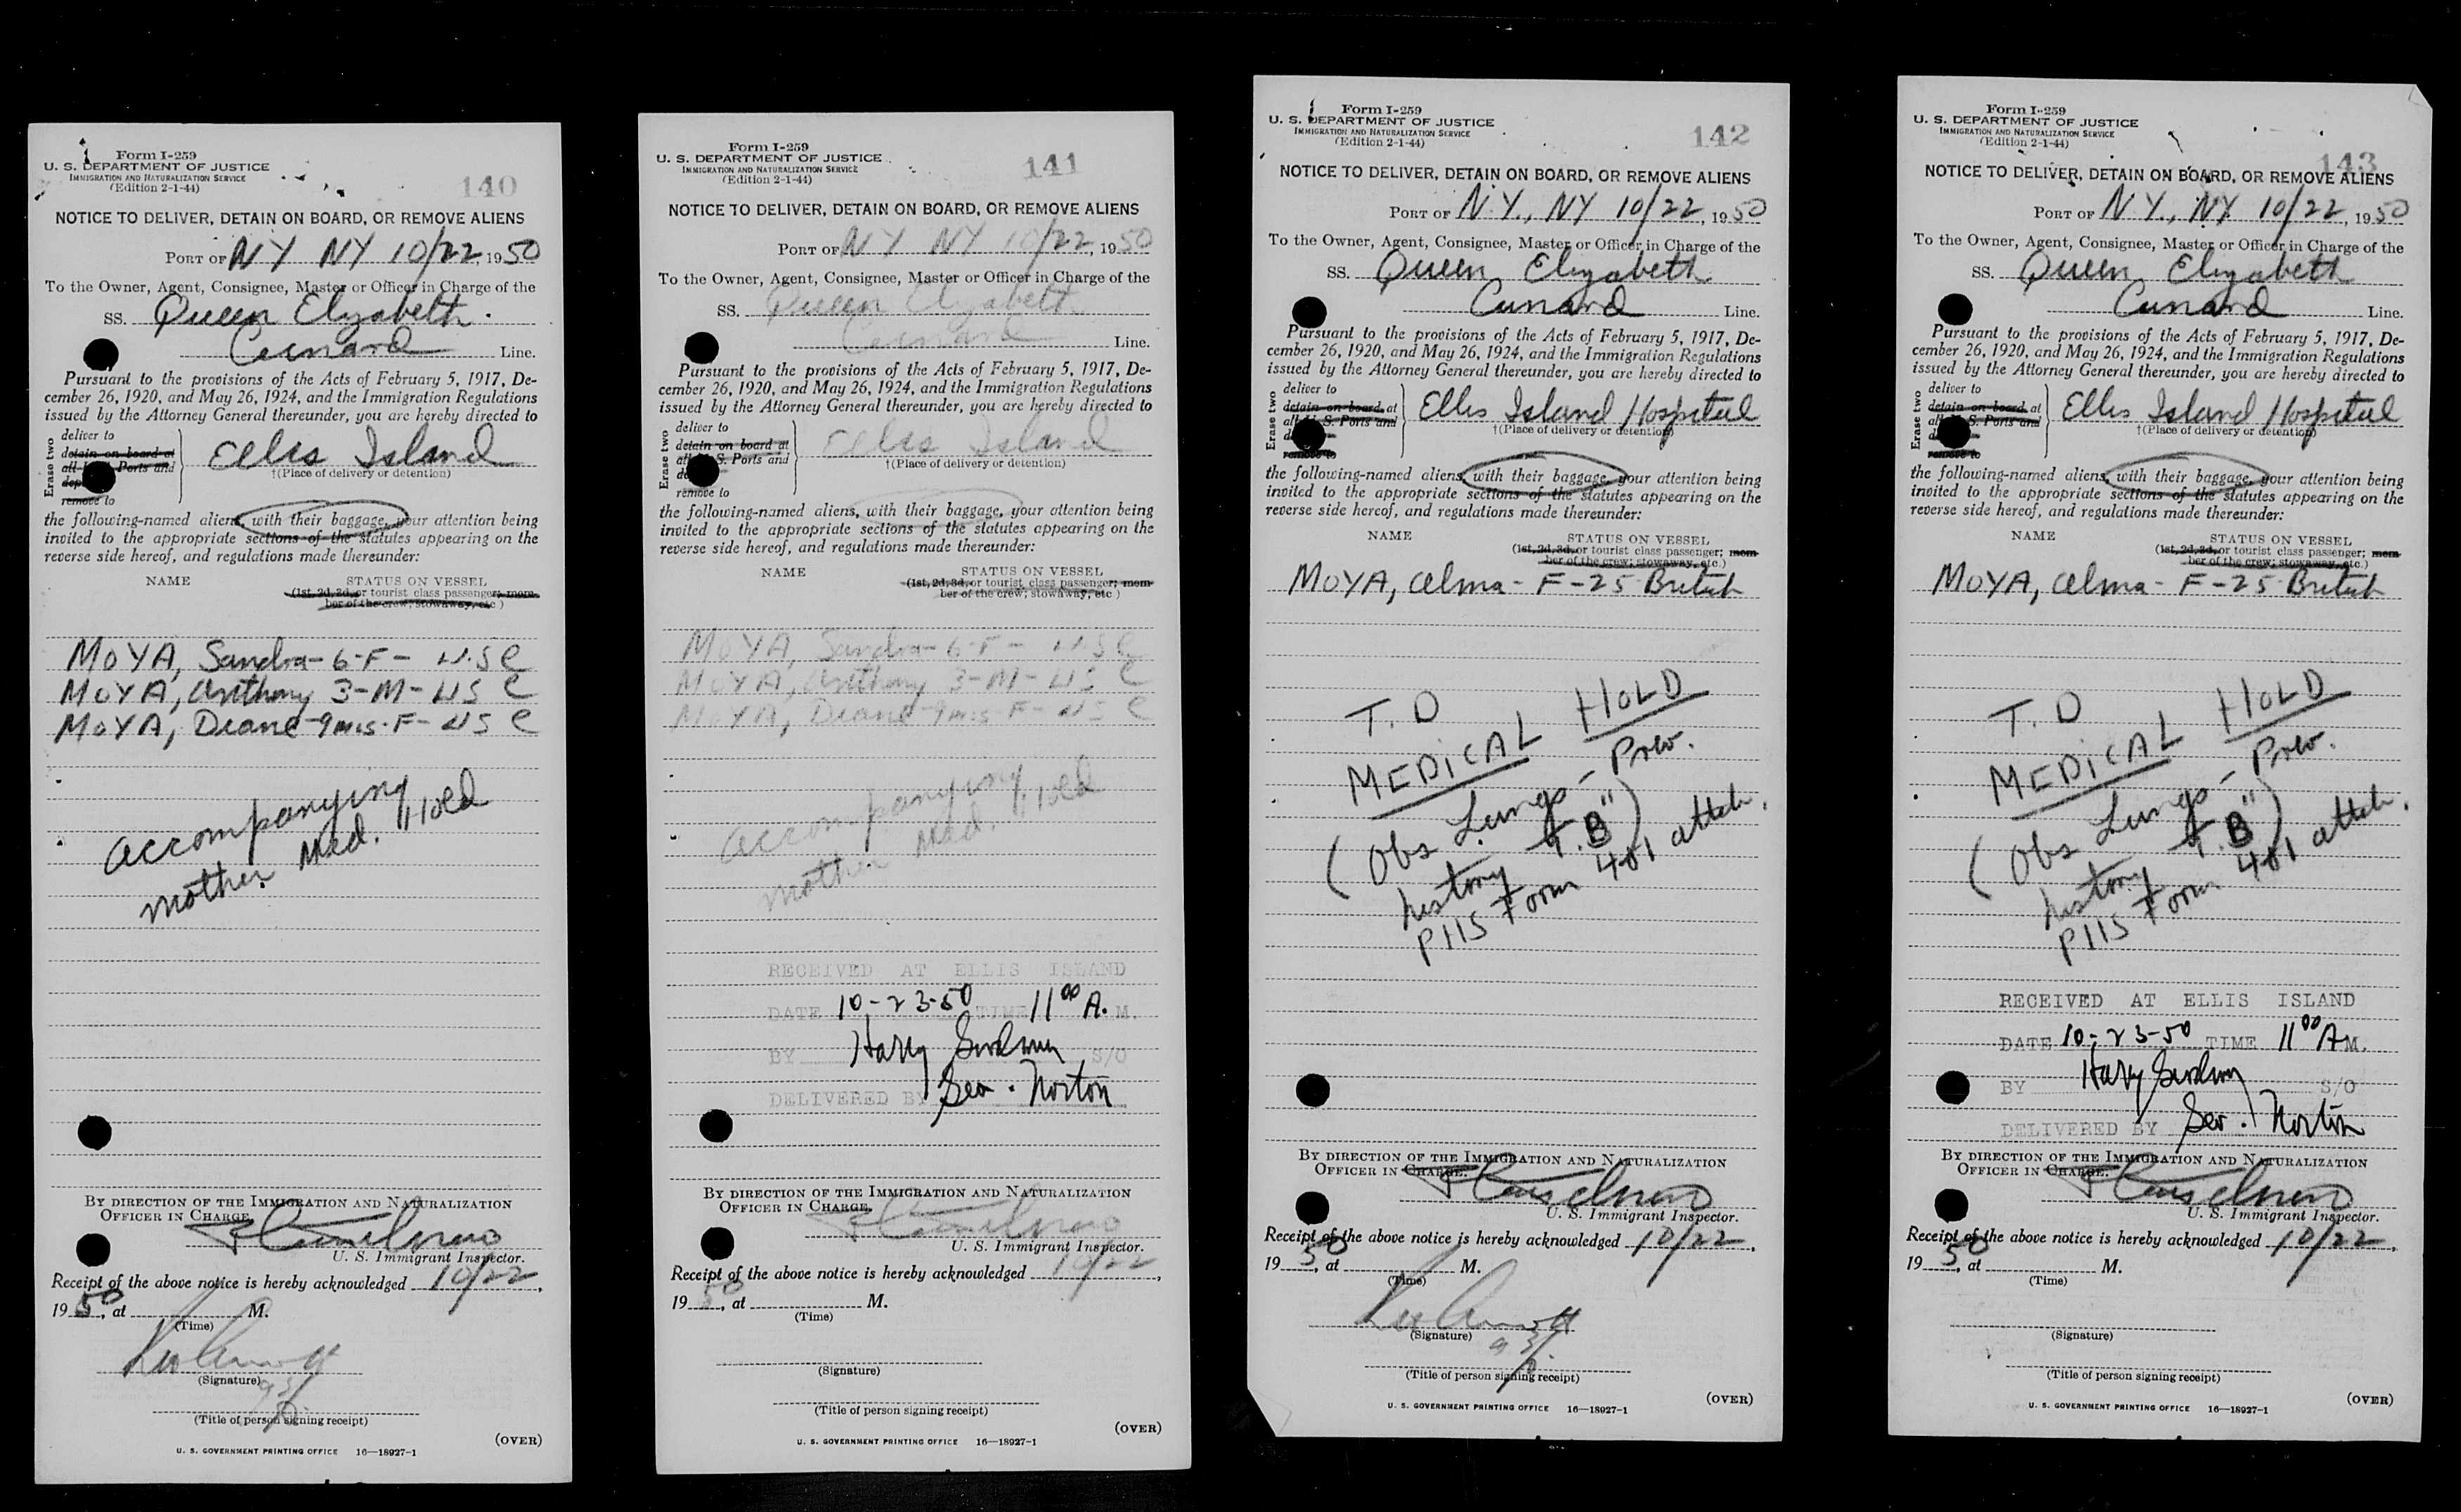 Form I-259
U. S. DEPARTMENT OF JUSTICE
IMMIGRATION AND NATURALIZATION SERVICE
(Edition 2-1-44)
140
NOTICE TO DELIVER, DETAIN ON BOARD, OR REMOVE ALIENS
PORT OF NY NY 10/22, 1950
To the Owner, Agent, Consignee, Master or Officer in Charge of the
SS. Queen Elizabeth
Cunard Line.
Pursuant to the provisions of the Acts of February 5, 1917, De-
cember 26, 1920, and May 26, 1924, and the Immigration Regulations
issued by the Attorney General thereunder, you are hereby directed to
Erase two
deliver to
detain on board at
all Ports and
dep
remove to
Ellis Island
†(Place of delivery or detention)
the following-named aliens, with their baggage, your attention being
invited to the appropriate sections of the statutes appearing on the
reverse side hereof, and regulations made thereunder:
NAME STATUS ON VESSEL
(1st, 2d, 3d, or tourist class passenger; mem-
ber of the crew; stowaway, etc.)
MOYA, Sandra - 6-F - USC
MOYA, Anthony 3-M-USC
MOYA, Diane-9mos-F-USC
Accompanying
mother Med. Hold
BY DIRECTION OF THE IMMIGRATION AND NATURALIZATION
OFFICER IN CHARGE.
U. S. Immigrant Inspector.
Receipt of the above notice is hereby acknowledged 10/22,
1950, at M.
(Time)
(Signature)
(Title of person signing receipt)
(OVER)
U. S. GOVERNMENT PRINTING OFFICE 16—18927-1
Form I-259
U. S. DEPARTMENT OF JUSTICE
IMMIGRATION AND NATURALIZATION SERVICE
(Edition 2-1-44)
141
NOTICE TO DELIVER, DETAIN ON BOARD, OR REMOVE ALIENS
PORT OF NY NY 10/22, 1950
To the Owner, Agent, Consignee, Master or Officer in Charge of the
SS. Queen Elizabeth
Cunard Line.
Pursuant to the provisions of the Acts of February 5, 1917, De-
cember 26, 1920, and May 26, 1924, and the Immigration Regulations
issued by the Attorney General thereunder, you are hereby directed to
Erase two
deliver to
detain on board at
all S. Ports and
remove to
Ellis Island
†(Place of delivery or detention)
the following-named aliens, with their baggage, your attention being
invited to the appropriate sections of the statutes appearing on the
reverse side hereof, and regulations made thereunder:
NAME STATUS ON VESSEL
(1st, 2d, 3d, or tourist class passenger; mem-
ber of the crew; stowaway, etc.)
MOYA, Sandra - 6-F - USC
MOYA, Anthony 3-M-USC
MOYA, Diane-9mos-F-USC
Accompanying
mother Med. Hold
RECEIVED AT ELLIS ISLAND
DATE 10-23-50 TIME 11 00 A. M.
BY Harry S/O
DELIVERED BY Geo. Norton
BY DIRECTION OF THE IMMIGRATION AND NATURALIZATION
OFFICER IN CHARGE.
U. S. Immigrant Inspector.
Receipt of the above notice is hereby acknowledged 10/22,
1950, at M.
(Time)
(Signature)
(Title of person signing receipt)
(OVER)
U. S. GOVERNMENT PRINTING OFFICE 16—18927-1
Form I-259
U. S. DEPARTMENT OF JUSTICE
IMMIGRATION AND NATURALIZATION SERVICE
(Edition 2-1-44)
142
NOTICE TO DELIVER, DETAIN ON BOARD, OR REMOVE ALIENS
PORT OF N.Y., NY 10/22, 1950
To the Owner, Agent, Consignee, Master or Officer in Charge of the
SS. Queen Elizabeth
Cunard Line.
Pursuant to the provisions of the Acts of February 5, 1917, De-
cember 26, 1920, and May 26, 1924, and the Immigration Regulations
issued by the Attorney General thereunder, you are hereby directed to
Erase two
deliver to
detain on board at
all S. Ports and
remove to
Ellis Island Hospital
†(Place of delivery or detention)
the following-named aliens, with their baggage, your attention being
invited to the appropriate sections of the statutes appearing on the
reverse side hereof, and regulations made thereunder:
NAME STATUS ON VESSEL
(1st, 2d, 3d, or tourist class passenger; mem-
ber of the crew; stowaway, etc.)
MOYA, Alma - F-25 British
T.D
MEDICAL HOLD
(Obs Lungs - Prev.
history T.B")
PHS Form 401 attch.
BY DIRECTION OF THE IMMIGRATION AND NATURALIZATION
OFFICER IN CHARGE.
U. S. Immigrant Inspector.
Receipt of the above notice is hereby acknowledged 10/22,
1950, at M.
(Time)
(Signature)
(Title of person signing receipt)
(OVER)
U. S. GOVERNMENT PRINTING OFFICE 16—18927-1
Form I-259
U. S. DEPARTMENT OF JUSTICE
IMMIGRATION AND NATURALIZATION SERVICE
(Edition 2-1-44)
143
NOTICE TO DELIVER, DETAIN ON BOARD, OR REMOVE ALIENS
PORT OF N.Y., NY 10/22, 1950
To the Owner, Agent, Consignee, Master or Officer in Charge of the
SS. Queen Elizabeth
Cunard Line.
Pursuant to the provisions of the Acts of February 5, 1917, De-
cember 26, 1920, and May 26, 1924, and the Immigration Regulations
issued by the Attorney General thereunder, you are hereby directed to
Erase two
deliver to
detain on board at
all S. Ports and
remove to
Ellis Island Hospital
†(Place of delivery or detention)
the following-named aliens, with their baggage, your attention being
invited to the appropriate sections of the statutes appearing on the
reverse side hereof, and regulations made thereunder:
NAME STATUS ON VESSEL
(1st, 2d, 3d, or tourist class passenger; mem-
ber of the crew; stowaway, etc.)
MOYA, Alma - F-25 British
T.D
MEDICAL HOLD
(Obs Lungs - Prev.
history T.B")
PHS Form 401 attch.
RECEIVED AT ELLIS ISLAND
DATE 10-23-50 TIME 11 00 A M.
BY Harry S/O
DELIVERED BY Geo. Norton
BY DIRECTION OF THE IMMIGRATION AND NATURALIZATION
OFFICER IN CHARGE.
U. S. Immigrant Inspector.
Receipt of the above notice is hereby acknowledged 10/22,
1950, at M.
(Time)
(Signature)
(Title of person signing receipt)
(OVER)
U. S. GOVERNMENT PRINTING OFFICE 16—18927-1